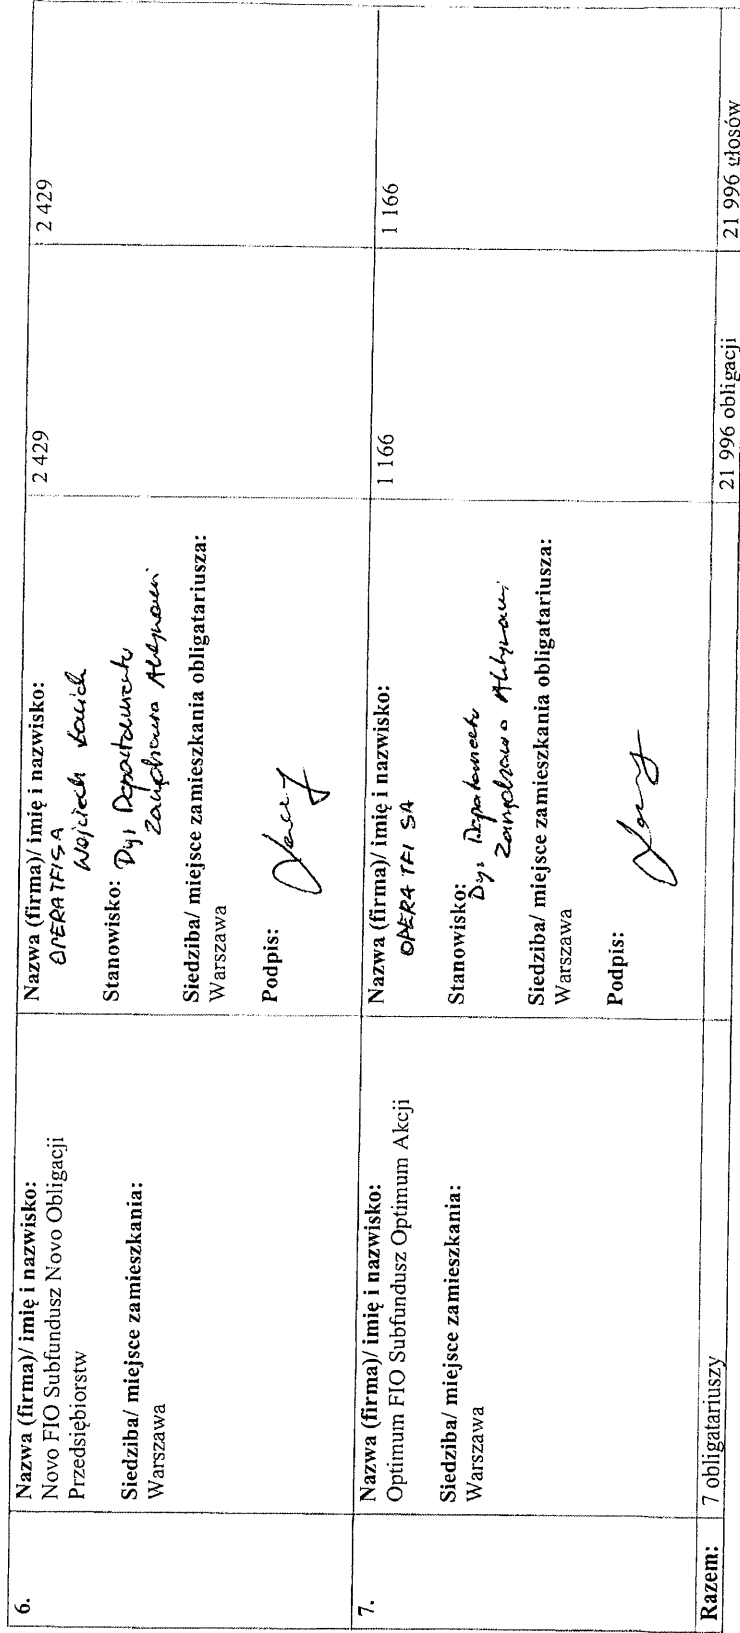 6.
Nazwa (firma)/ imię i nazwisko:
Novo FIO Subfundusz Novo Obligacji
Przedsiębiorstw
Siedziba/ miejsce zamieszkania:
Warszawa
Nazwa (firma)/ imię i nazwisko:
OPERA TFI SA
Wojciech
Stanowisko: Dyr Departamentu
Siedziba/ miejsce zamieszkania obligatariusza:
Warszawa
Podpis:
2 429
2 429
7.
Nazwa (firma)/ imię i nazwisko:
Optimum FIO Subfundusz Optimum Akcji
Siedziba/ miejsce zamieszkania:
Warszawa
Nazwa (firma)/ imię i nazwisko:
OPERA TFI SA
Stanowisko:
Dyr Departamentu
Siedziba/ miejsce zamieszkania obligatariusza:
Warszawa
Podpis:
1 166
1 166
Razem:
7 obligatariuszy
21 996 obligacji
21 996 głosów